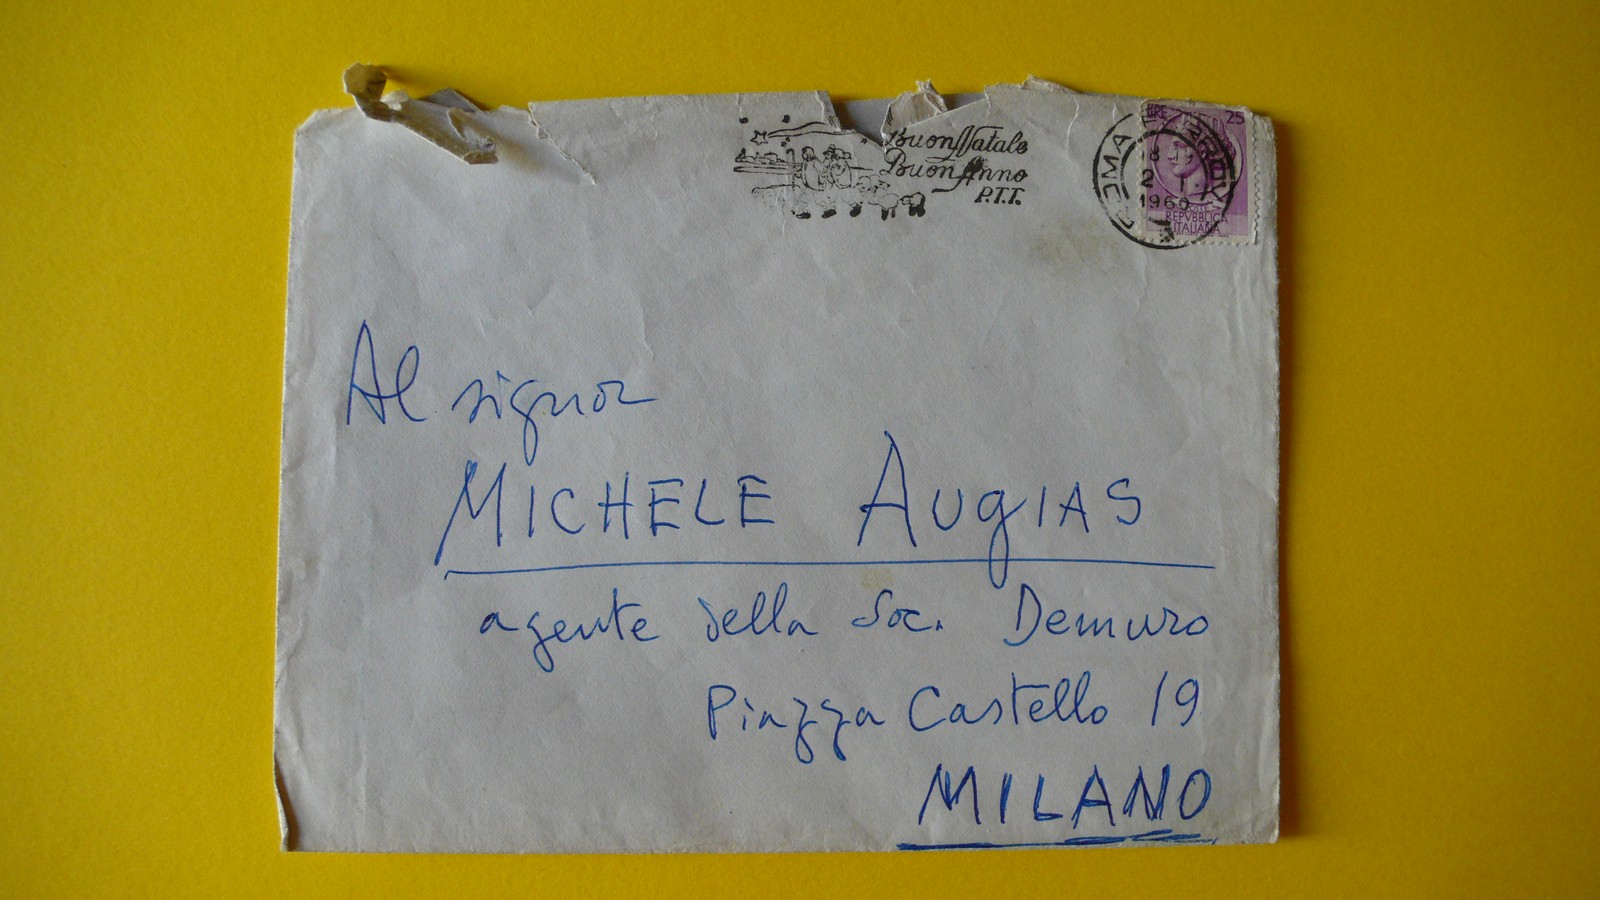 Buon Natale
Buon Anno
P.T.T.
LIRE 25
ROMA FERROVIA
18
2 1
1960
REPVBBLICA
ITALIANA
Al signor
MICHELE AUgIAS
agente della Soc. Demuro
Piazza Castello 19
MILANO